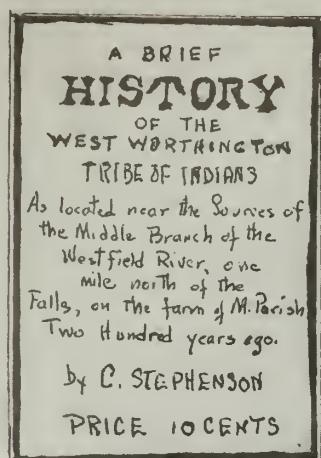 A BRIEF
HISTORY
OF THE
WEST WORTHINGTON
TRIBE OF INDIANS
As located near the Sources of
the Middle Branch of the
Westfield River, one
mile north of the
Falls, on the farm of M. Parish
Two Hundred years ago.
by C. STEPHENSON
PRICE 10 CENTS